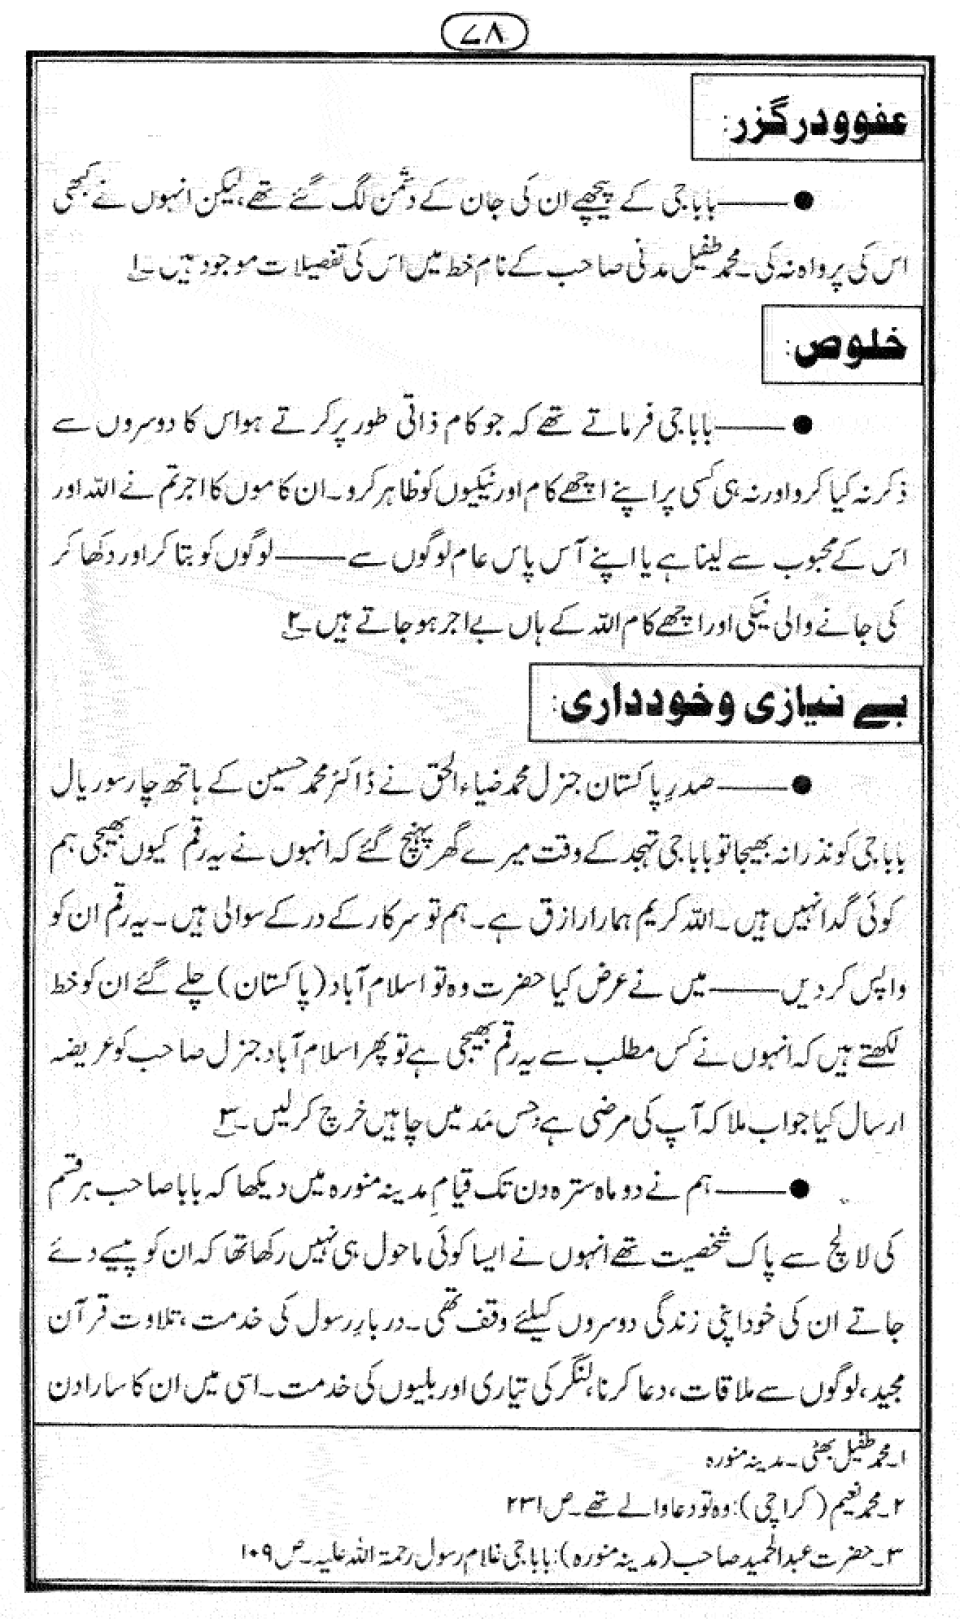 ۷۸
عفوودرگزر:
●——— باباجی کے پیچھے ان کی جان کے دشمن لگ گئے تھے،لیکن انہوں نے کبھی
اس کی پرواہ نہ کی۔محمد طفیل مدنی صاحب کے نام خط میں اس کی تفصیلات موجود ہیں۔۱
خلوص:
●——— باباجی فرماتے تھے کہ جو کام ذاتی طور پر کرتے ہو اس کا دوسروں سے
ذکر نہ کیا کرو اور نہ ہی کسی پر اپنے اچھے کام اور نیکیوں کو ظاہر کرو۔ان کاموں کا اجر تم نے اللہ اور
اس کے محبوب سے لینا ہے یا اپنے آس پاس عام لوگوں سے ——— لوگوں کو بتا کر اور دکھا کر
کی جانے والی نیکی اور اچھے کام اللہ کے ہاں بے اجر ہو جاتے ہیں۔۲
بے نیازی وخودداری:
●——— صدرِ پاکستان جنرل محمد ضیاء الحق نے ڈاکٹر محمد حسین کے ہاتھ چار سو ریال
باباجی کو نذرانہ بھیجا تو باباجی تہجد کے وقت میرے گھر پہنچ گئے کہ انہوں نے یہ رقم کیوں بھیجی ہم
کوئی گدا نہیں ہیں۔اللہ کریم ہمارا رازق ہے۔ہم تو سرکار کے در کے سوالی ہیں۔یہ رقم ان کو
واپس کر دیں ——— میں نے عرض کیا حضرت وہ تو اسلام آباد (پاکستان) چلے گئے ان کو خط
لکھتے ہیں کہ انہوں نے کس مطلب سے یہ رقم بھیجی ہے تو پھر اسلام آباد جنرل صاحب کو عریضہ
ارسال کیا جواب ملا کہ آپ کی مرضی ہے جس مَد میں چاہیں خرچ کرلیں۔۳
●——— ہم نے دو ماہ سترہ دن تک قیامِ مدینہ منورہ میں دیکھا کہ بابا صاحب ہر قسم
کی لالچ سے پاک شخصیت تھے انہوں نے ایسا کوئی ماحول ہی نہیں رکھا تھا کہ ان کو پیسے دئے
جاتے ان کی خود اپنی زندگی دوسروں کیلئے وقف تھی۔دربارِ رسول کی خدمت،تلاوت قرآن
مجید،لوگوں سے ملاقات،دعا کرنا،لنگر کی تیاری اور بلیوں کی خدمت۔اسی میں ان کا سارا دن
۱۔محمد طفیل بھٹی۔مدینہ منورہ
۲۔محمد نعیم (کراچی): وہ تو دعا والے تھے۔ص ۲۳۱
۳۔حضرت عبدالحمید صاحب (مدینہ منورہ): باباجی غلام رسول رحمۃ اللہ علیہ۔ص ۱۰۹